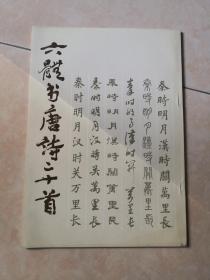 六體书唐詩三十首
秦時明月漢時關萬里長
秦時明月漢時關萬里長
秦時明月漢時關萬里長
秦時明月漢時關萬里長
秦時明月汉時关萬里長
秦时明月汉时关万里长